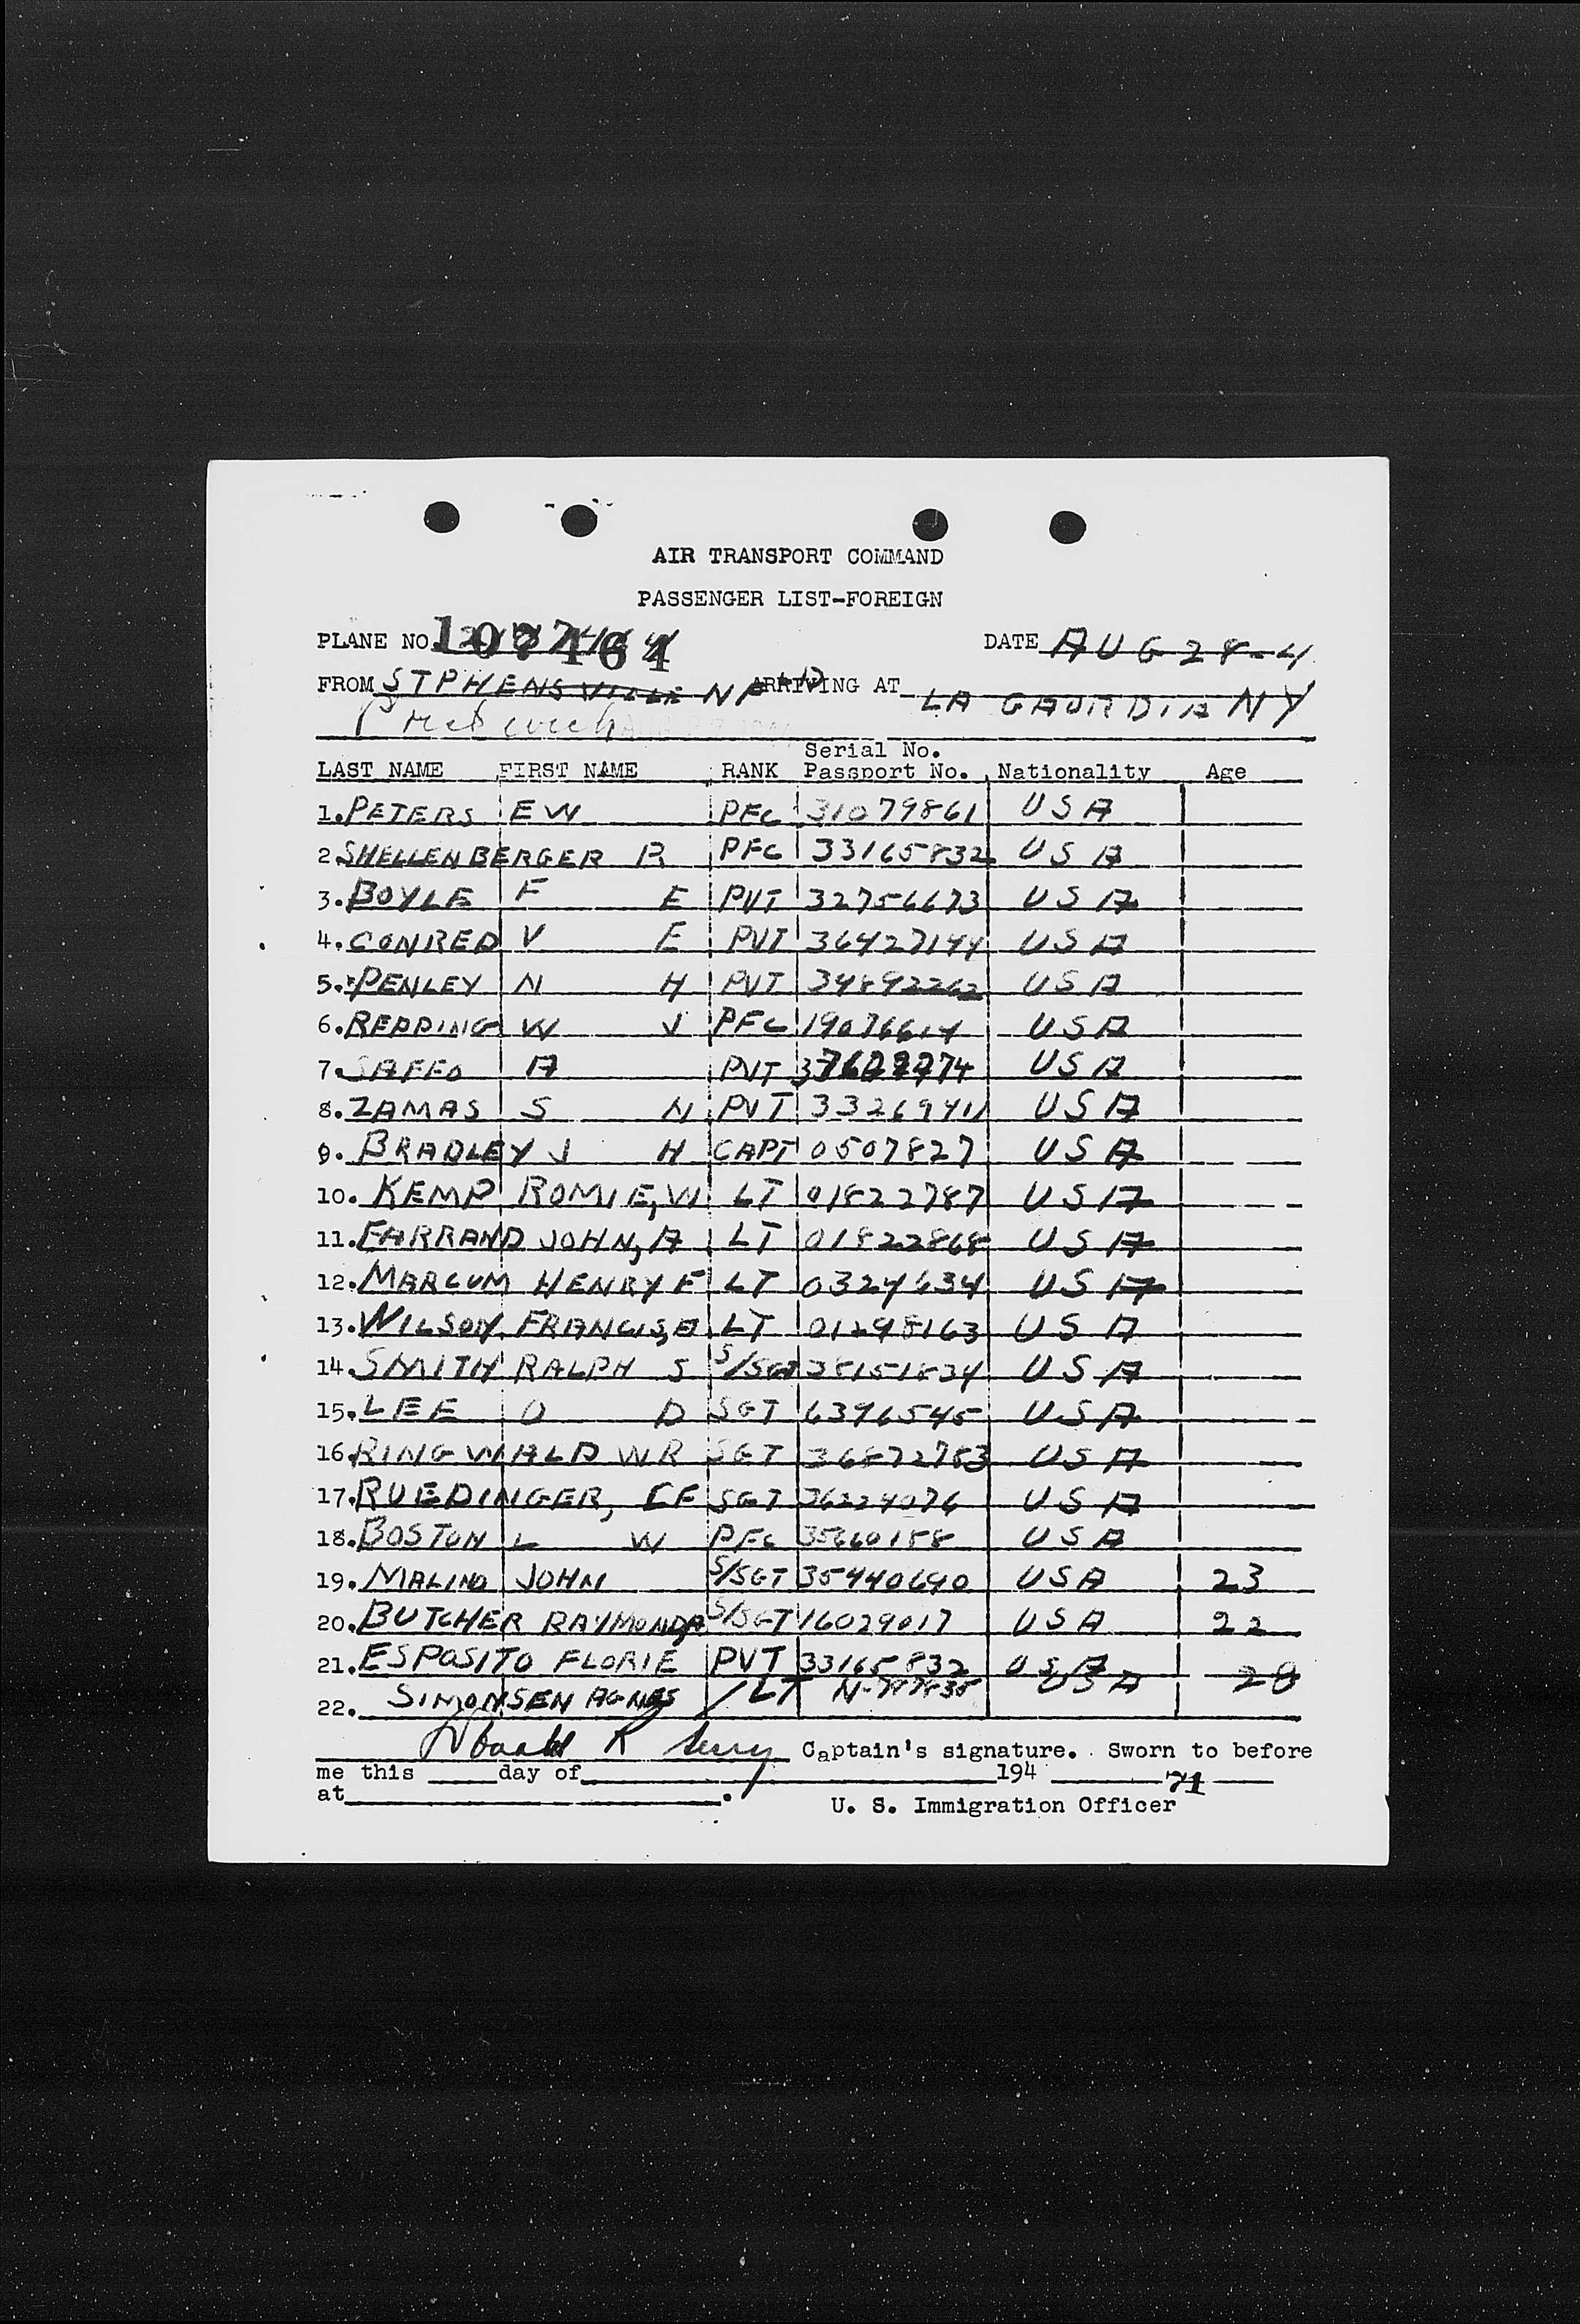 AIR TRANSPORT COMMAND
PASSENGER LIST-FOREIGN
PLANE NO. 107464 DATE AUG 28-4
FROM STPHENSVILLE NFLD ARRIVING AT LA GAURDIA NY
LAST NAME FIRST NAME RANK Serial No. Passport No. Nationality Age
1. PETERS E W PFC 31079861 USA
2. SHELLENBERGER R PFC 33165832 USA
3. BOYLE F E PVT 32756673 USA
4. CONRED V E PVT 36427144 USA
5. PENLEY N H PVT 34892262 USA
6. REDDING W J PFC 19076614 USA
7. SAFFO A PVT USA
8. ZAMAS S N PVT 33269411 USA
9. BRADLEY J H CAPT 0507827 USA
10. KEMP ROMIE, W LT 01822787 USA
11. FARRAND JOHN, A LT 01822868 USA
12. MARCUM HENRY F LT 0324634 USA
13. WILSON FRANCIS, A LT 01298163 USA
14. SMITH RALPH S S/SGT 38151834 USA
15. LEE O D SGT 6396545 USA
16. RINGWALD W R SGT 36872783 USA
17. RUEDINGER, E F SGT 36224076 USA
18. BOSTON L W PFC 35660158 USA
19. MALINO JOHN S/SGT 35440640 USA 23
20. BUTCHER RAYMOND, A S/SGT 16029017 USA 22
21. ESPOSITO FLORIE PVT 33165832 USA
22. SIMONSEN AGNES 1/LT USA 28
Captain's signature. Sworn to before
me this day of 194
at . 71
U. S. Immigration Officer